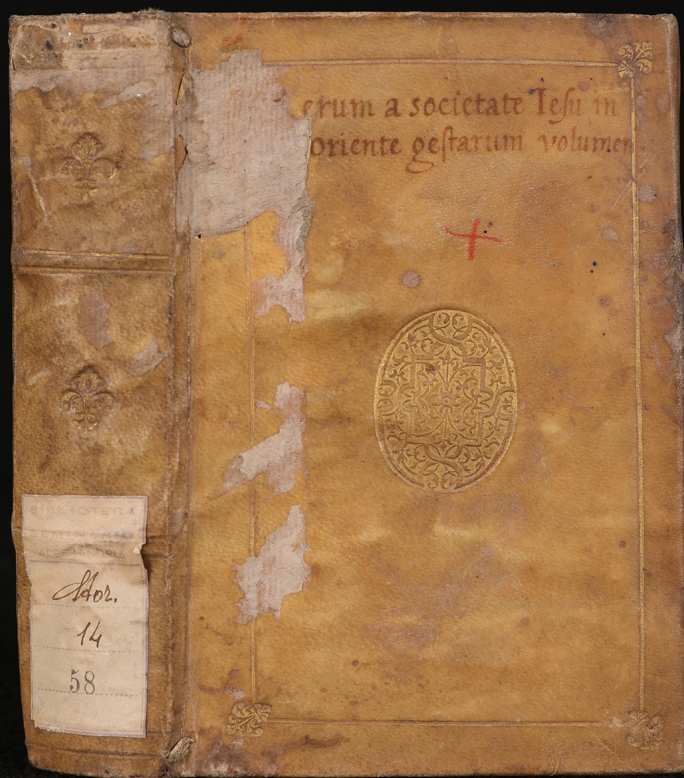 erum a societate Iesu in
oriente gestarum volumen.
BIBLIOTECA
SEMINARIO
Stor.
14
58